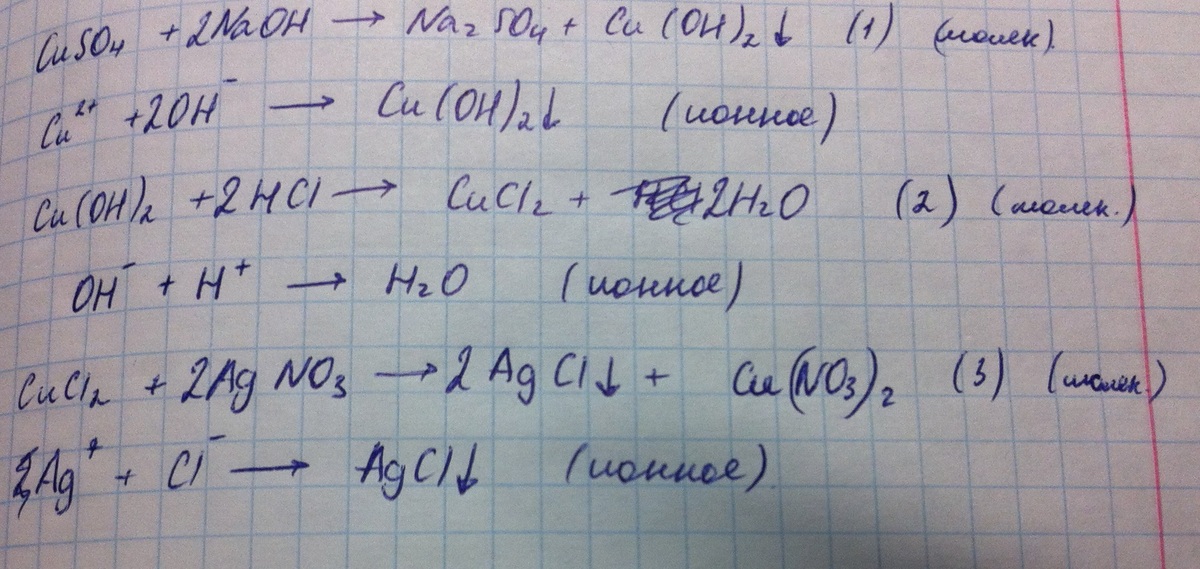 CuSO₄ + 2NaOH → Na₂SO₄ + Cu(OH)₂↓ (1) (молек).
Cu²⁺ + 2OH⁻ → Cu(OH)₂↓ (ионное)
Cu(OH)₂ + 2HCl → CuCl₂ + 2H₂O (2) (молек.)
OH⁻ + H⁺ → H₂O (ионное)
CuCl₂ + 2AgNO₃ → 2AgCl↓ + Cu(NO₃)₂ (3) (молек.)
Ag⁺ + Cl⁻ → AgCl↓ (ионное).